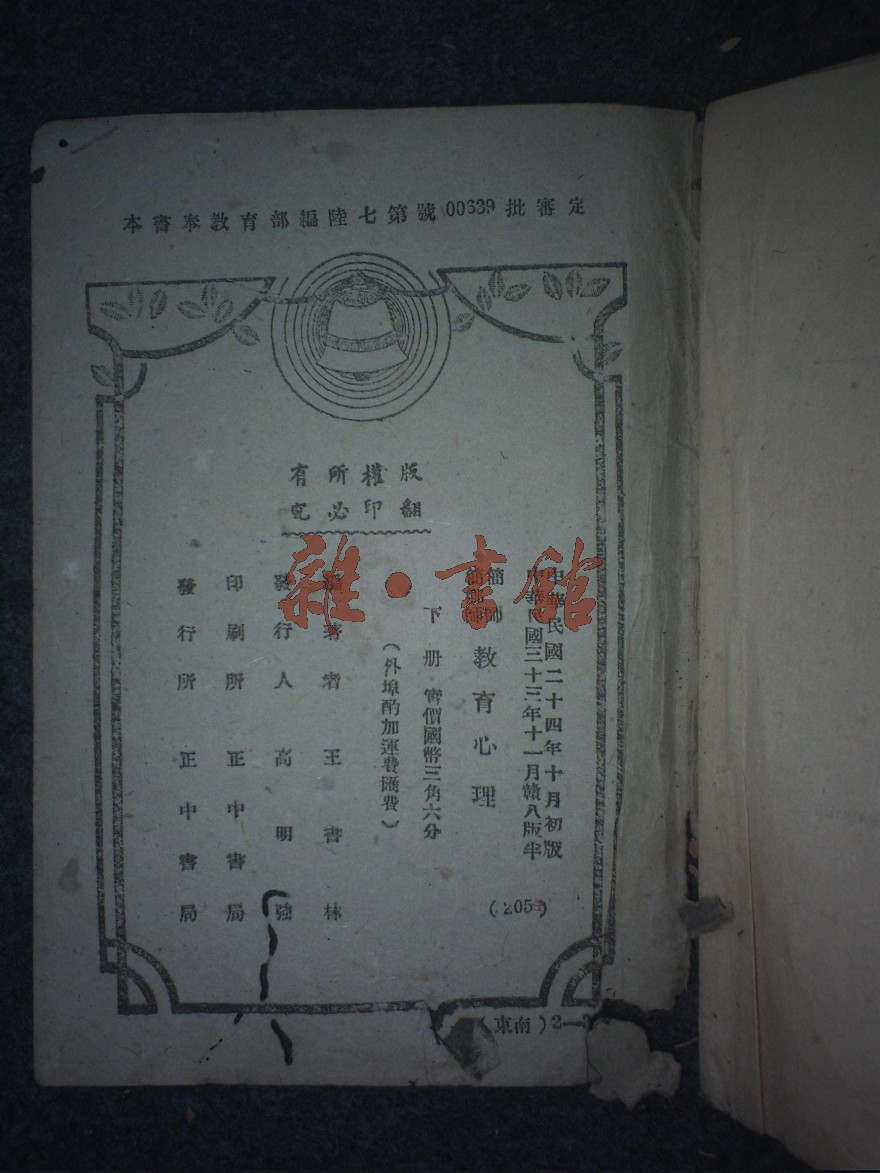 本書奉教育部編陸七第號00639批審定
版權所有
翻印必究
中華民國二十四年十月初版
中華民國三十三年十一月贛八版半
簡師
簡鄉師
教育心理
(205)
下册 實價國幣三角六分
(外埠酌加運費匯費)
編著者 王書林
發行人 高明強
印刷所 正中書局
發行所 正中書局
(東南)2—
雜·書館